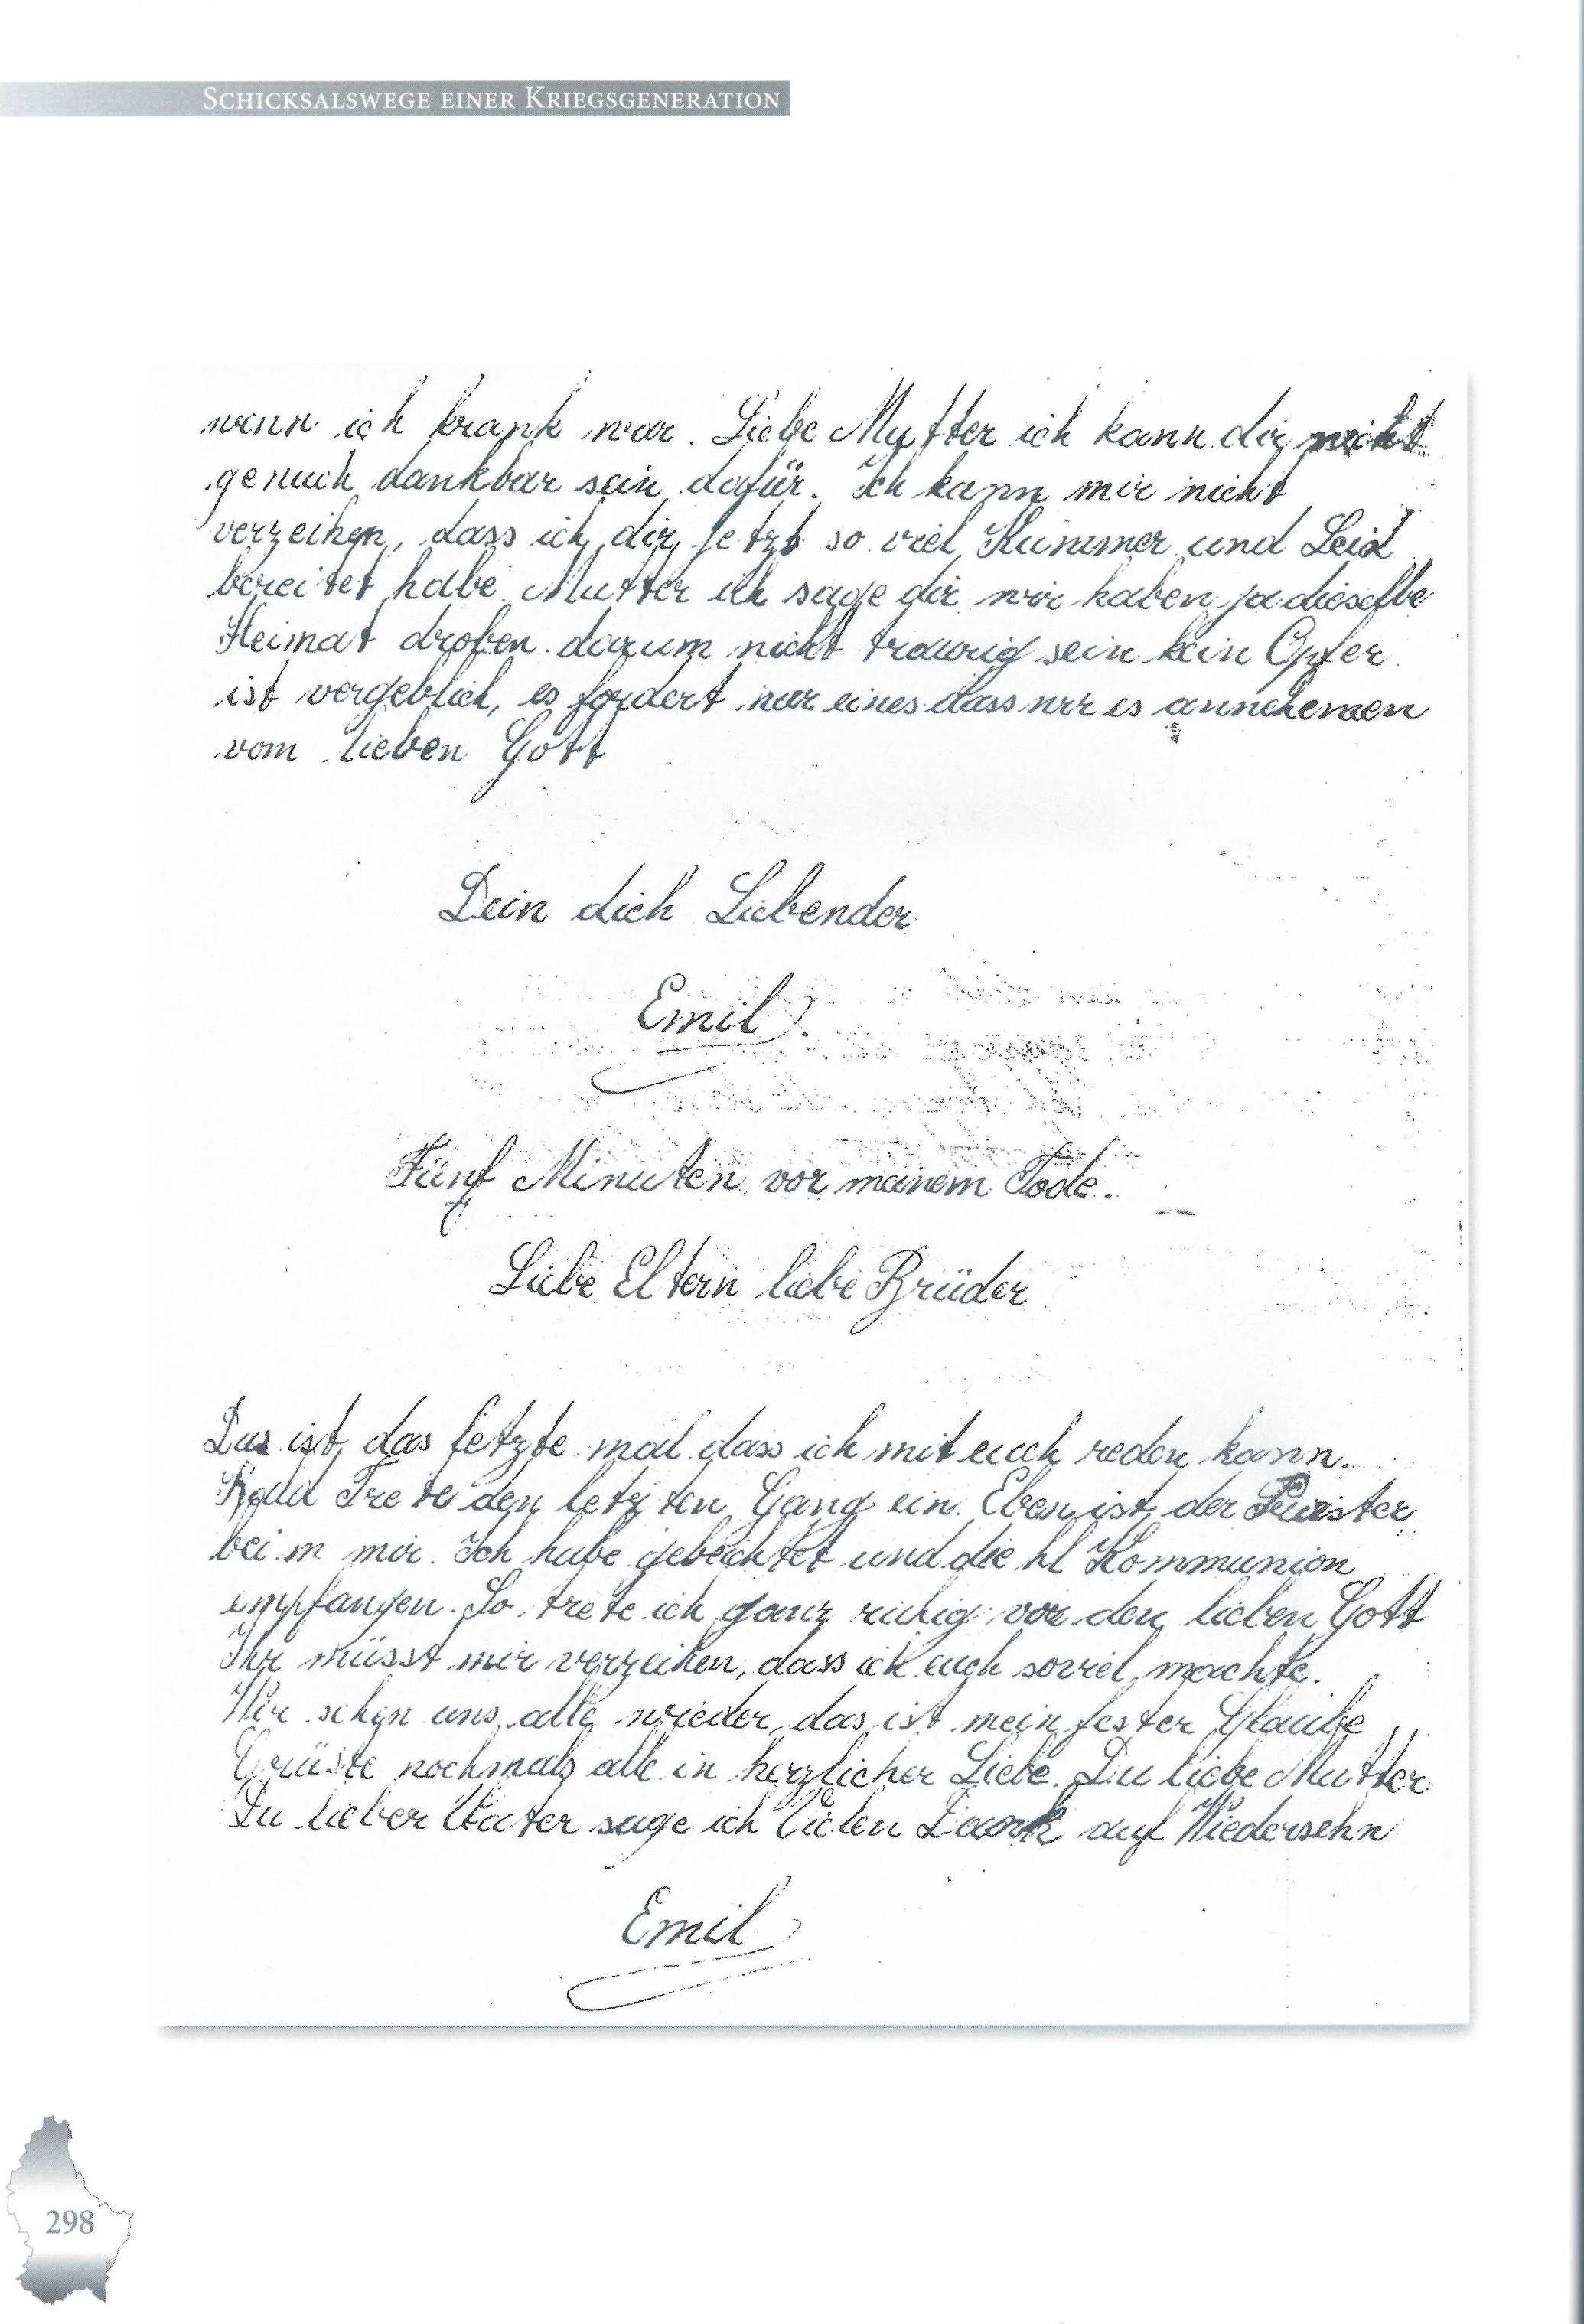 SCHICKSALSWEGE EINER KRIEGSGENERATION
wenn ich krank war. Liebe Mutter ich kann dir nicht
genuch dankbar sein dafür. Ich kann mir nicht
verzeihen, dass ich dir jetzt so viel Kummer und Leid
bereitet habe. Mutter ich sage dir wir haben ja dieselbe
Heimat droben darum nicht traurig sein kein Opfer
ist vergeblich, es fordert nur eines dass wir es annehemen
vom lieben Gott
Dein dich Liebender
Emil.
Fünf Minuten vor meinem Tode.
Liebe Eltern liebe Brüder
Das ist das letzte mal dass ich mit euch reden kann.
Bald Trete den letzten Gang ein. Eben ist der Priester
bei m mir. Ich habe gebeichtet und die hl Kommunion
empfangen. So trete ich ganz ruhig vor den lieben Gott
Ihr müsst mir verzeihen, dass ich euch soviel machte.
Wir sehen uns alle wieder, das ist mein fester Glaube
Grüsse nochmals alle in herzlicher Liebe. Du liebe Mutter
Du lieber Vater sage ich Vielen Dank auf Wiedersehn
Emil
298